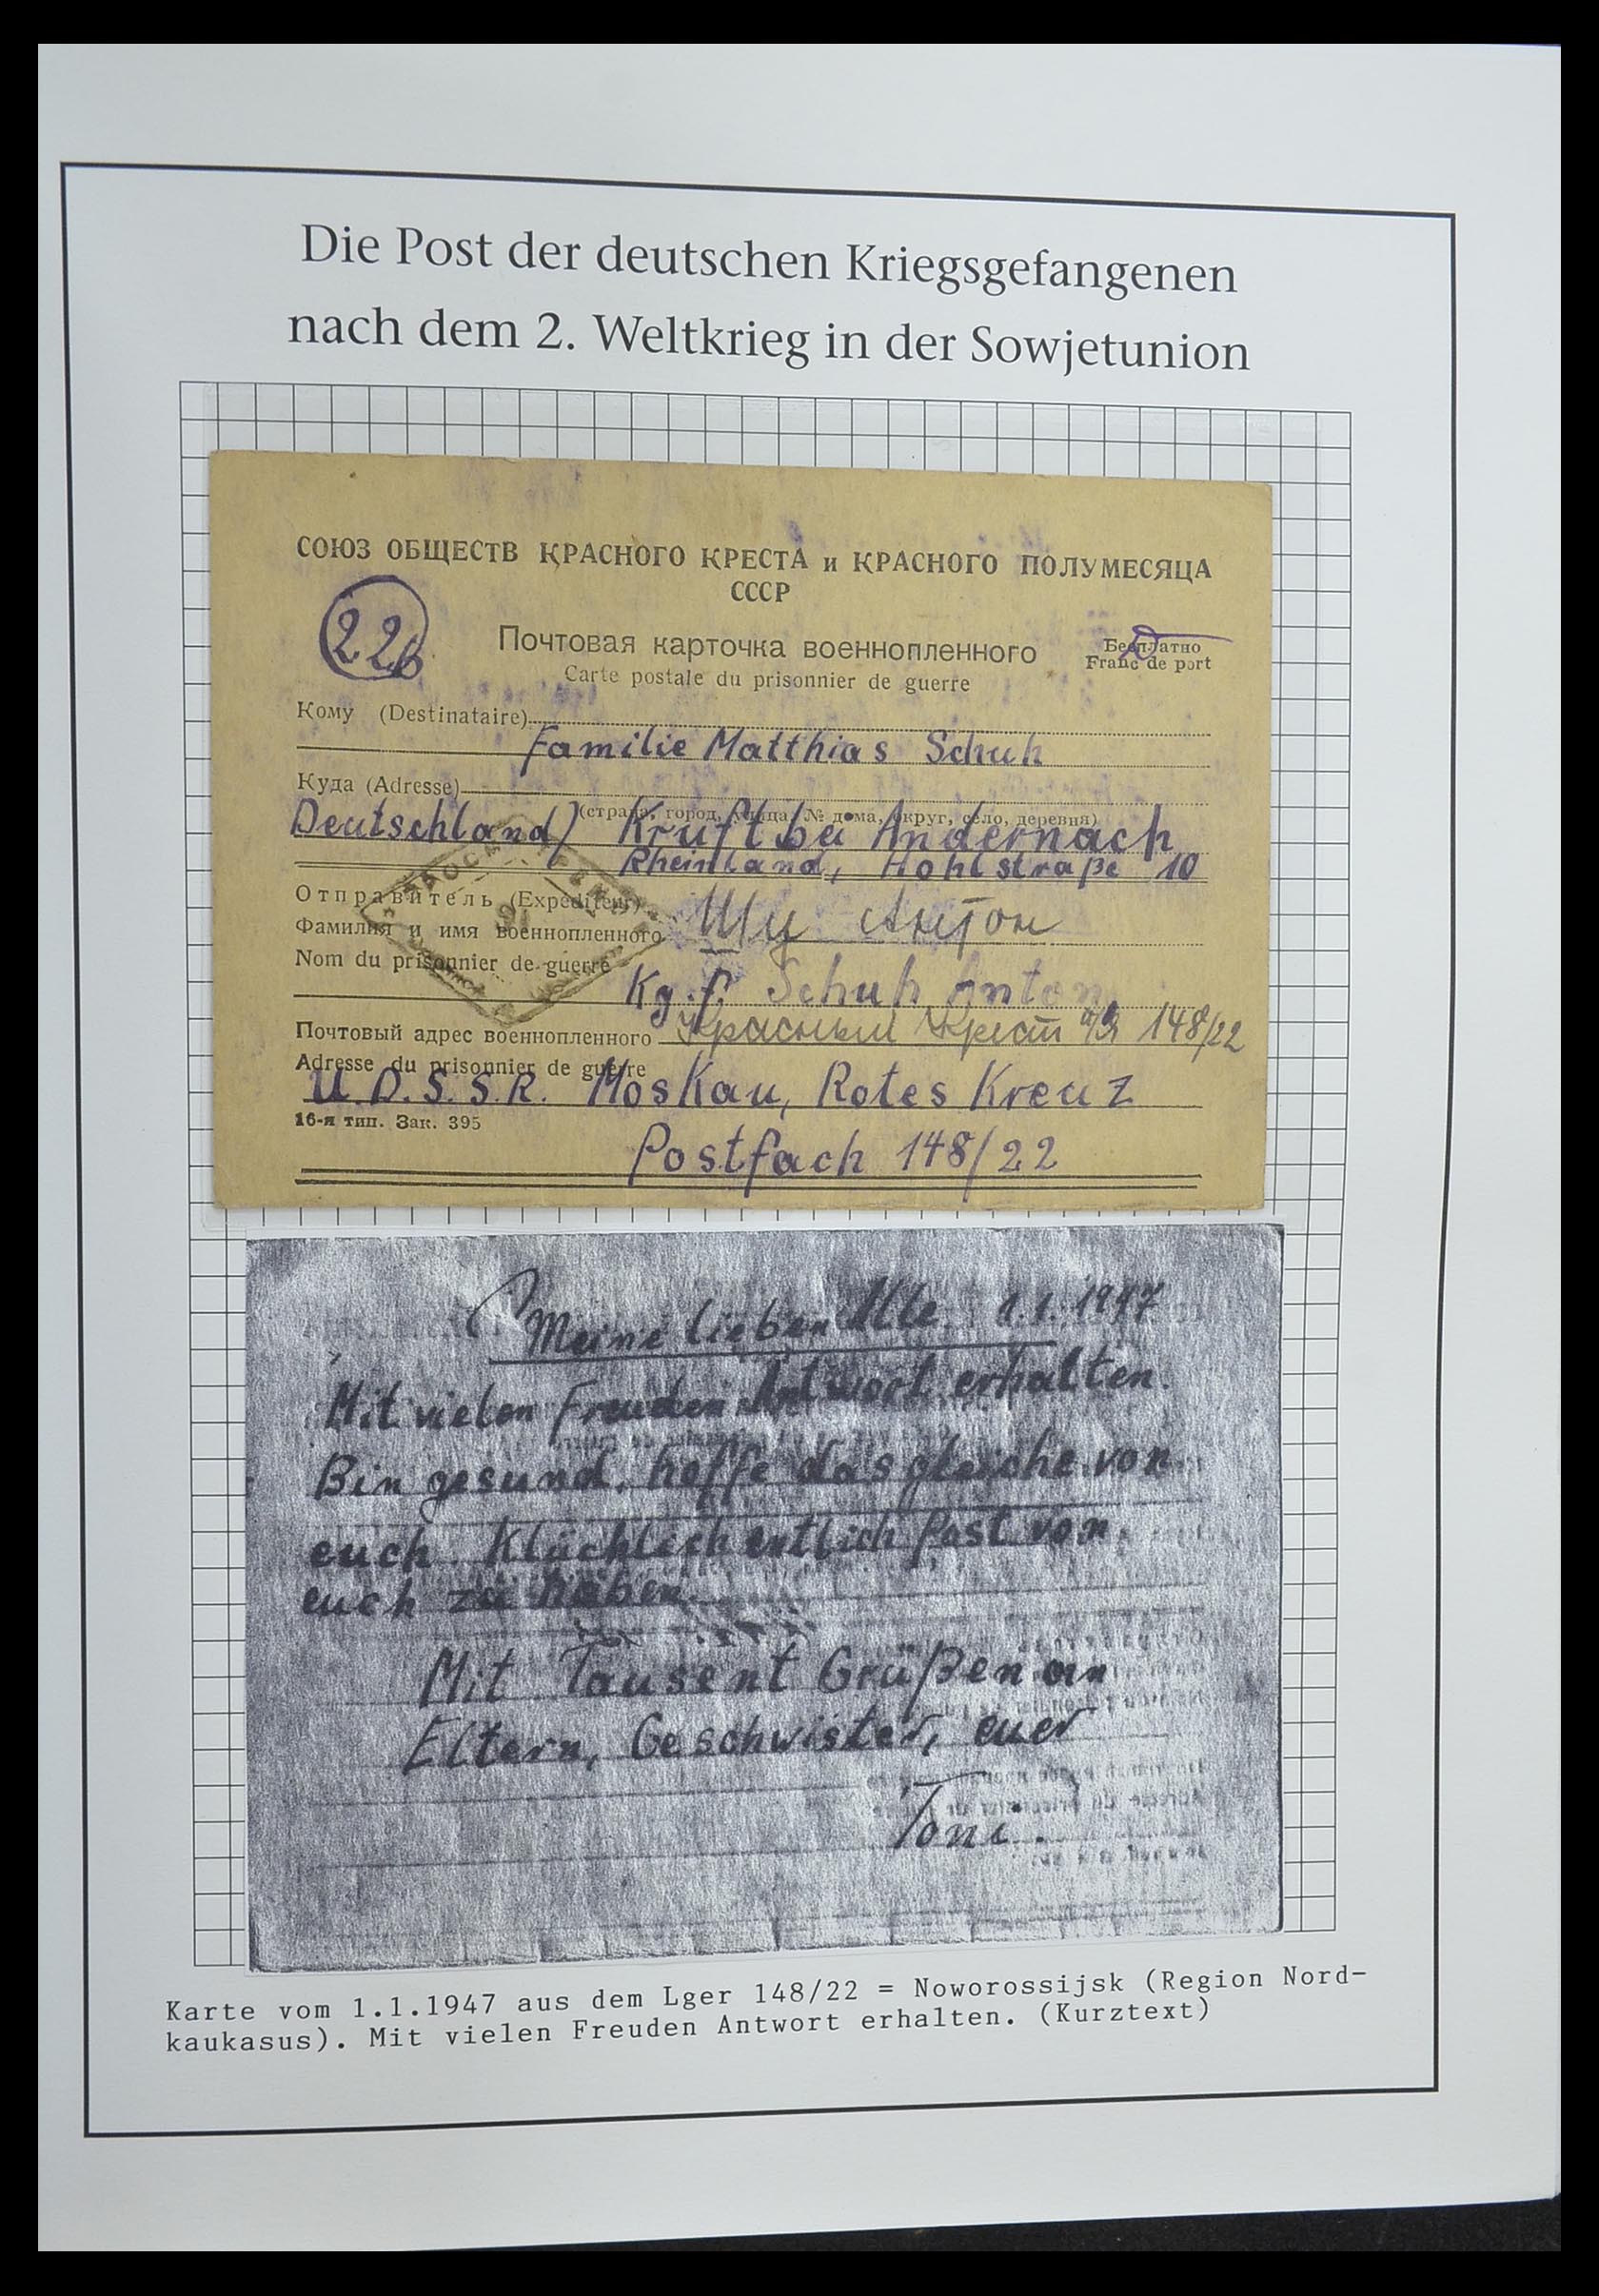 Die Post der deutschen Kriegsgefangenen
nach dem 2. Weltkrieg in der Sowjetunion
СОЮЗ ОБЩЕСТВ КРАСНОГО КРЕСТА и КРАСНОГО ПОЛУМЕСЯЦА
СССР
22b
Почтовая карточка военнопленного
Carte postale du prisonnier de guerre
Бесплатно
Franc de port
Кому (Destinataire)
Familie Matthias Schuh
Куда (Adresse)
(страна, город, улица, № дома, округ, село, деревня)
Deutschland) Kruft bei Andernach
Rheinland, Hohlstraße 10
Отправитель (Expéditeur)
Фамилия и имя военнопленного Шу Антон
Nom du prisonnier de guerre
Kg.f. Schuh Anton
Почтовый адрес военнопленного Красный Крест п/я 148/22
Adresse du prisonnier de guerre
U.D.S.S.R. Moskau, Rotes Kreuz
16-я тип. Зак. 395
Postfach 148/22
Meine lieben Alle. 1.1.1947
Mit vielen Freuden Antwort erhalten.
Bin gesund, hoffe das gleiche von
euch. Klüchlich entlich Post von
euch zu haben.
Mit Tausent Grüßen an
Eltern, Geschwister, euer
Toni.
Karte vom 1.1.1947 aus dem Lger 148/22 = Noworossijsk (Region Nord-
kaukasus). Mit vielen Freuden Antwort erhalten. (Kurztext)